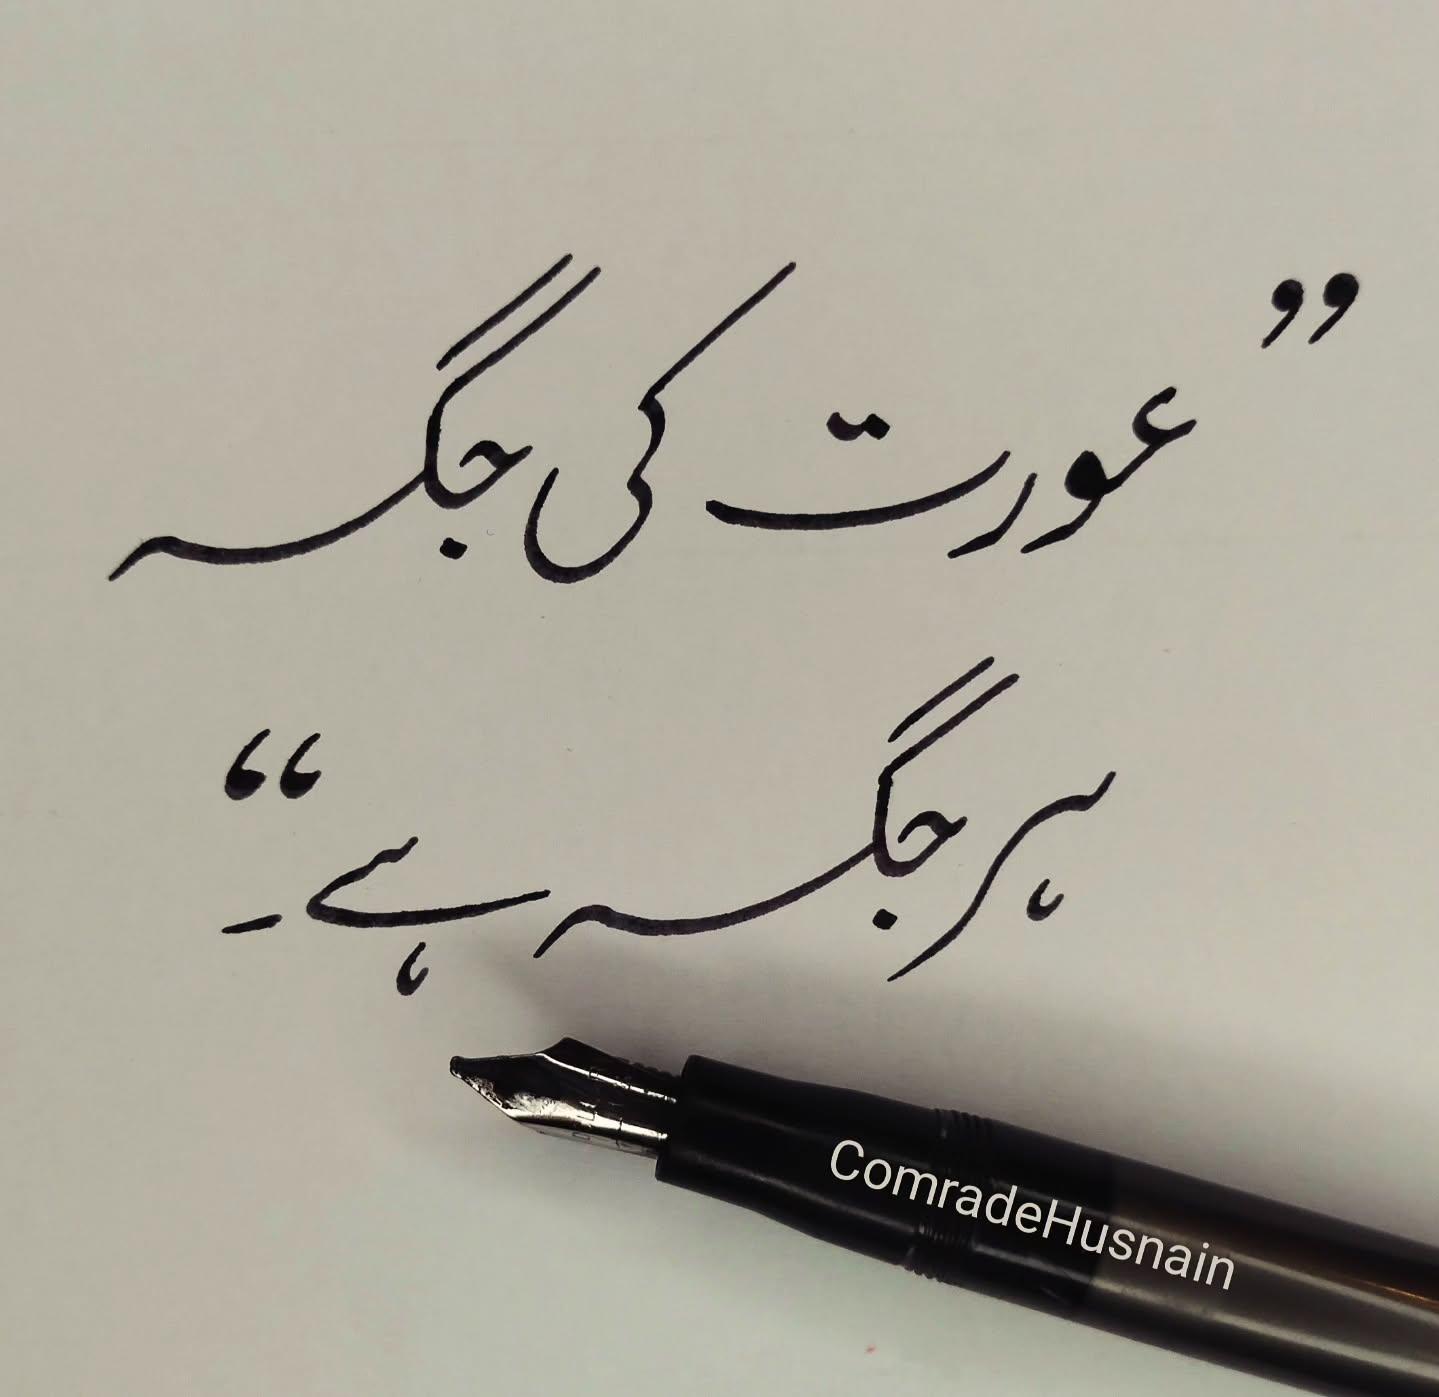 ”عورت کی جگہ
ہر جگہ ہے۔“
ComradeHusnain